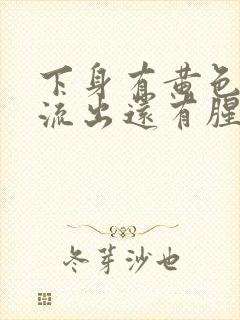 下身有黄色
流出还有腥
冬芽沙也